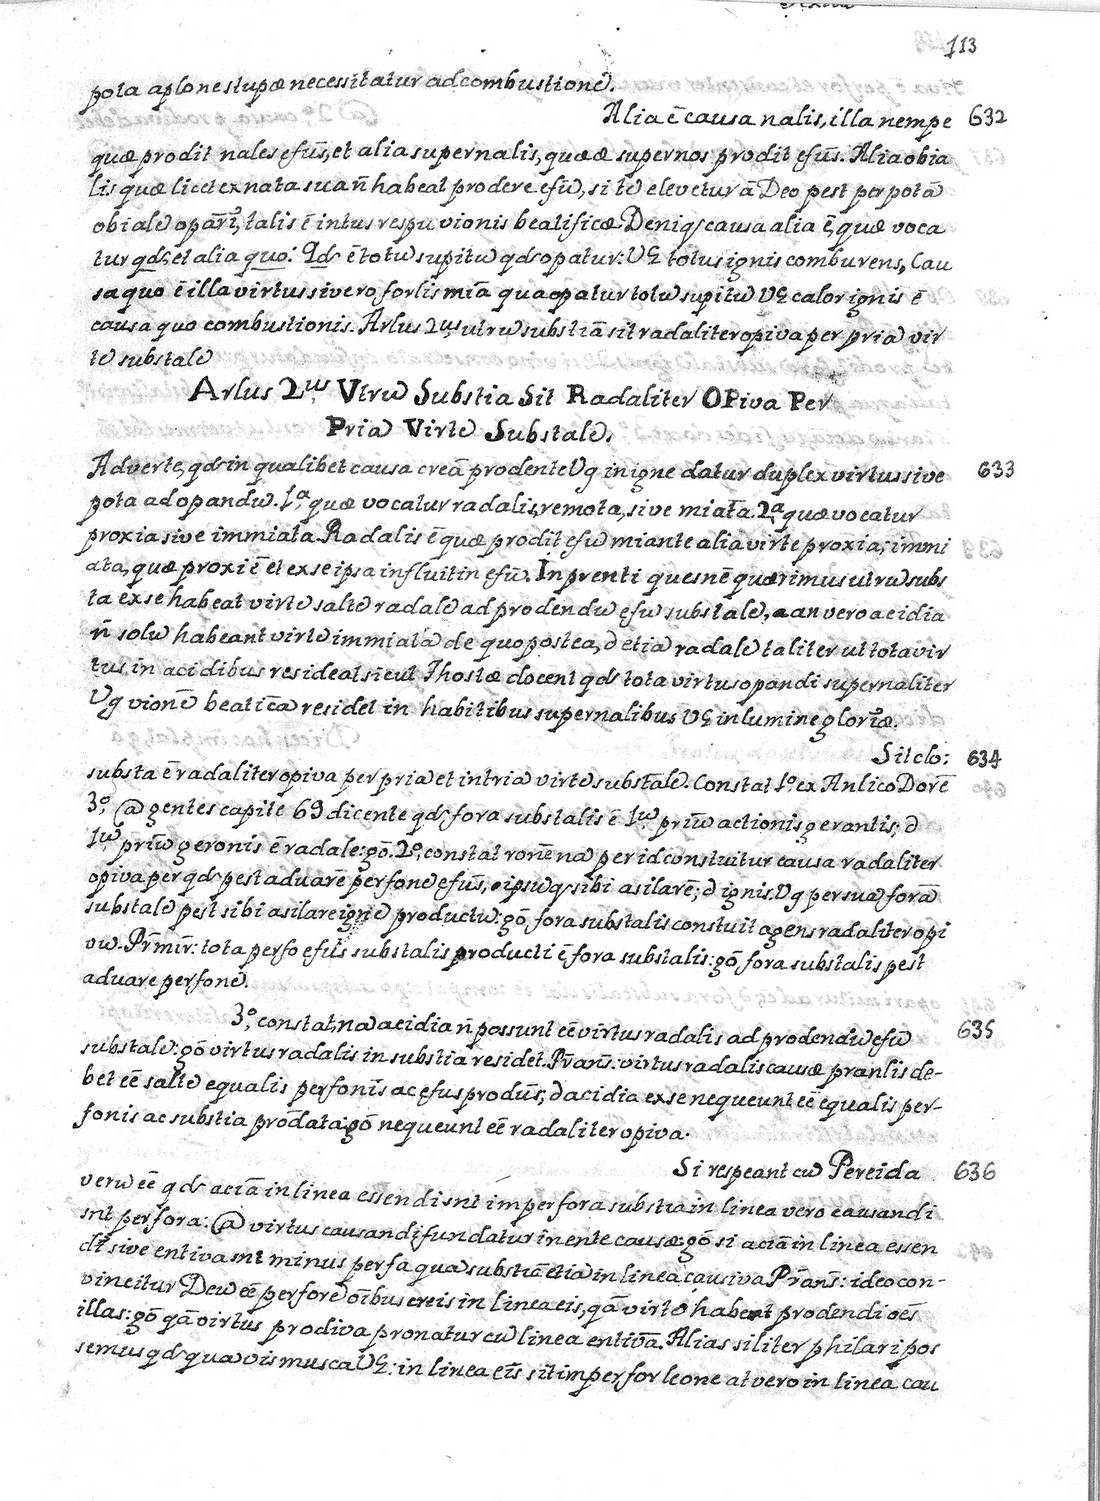 113
pota aplone stupæ necessitatur ad combustionē.
Alia ē causa nalis, illa nempe 632
quæ prodit nales efūs, et alia supernalis, quææ supernos prodit efūs. Alia obia
lis quæ licet ex nata sua ñ habeat prodere efū, si tē elevetur ā Deo pest per potā
obialē opari, talis ē intus respu vionis beatificæ Deniq causa alia ē, quæ voca
tur qds et alia quo: Qds ē totū supitū qds opatur: Vg totus ignis comburens, Cau
sa quo ē illa virtus sive ro forlis miā qua opatur totū supitū Vg calor ignis ē
causa quo combustionis. Arlus 2us, utrū substiā sit radaliter opiva per priā vir
tē substalē
Arlus 2us. Vtrū Substia Sit Radaliter OPiva Per
Priā Virtē Substalē.
Adverte, qds in qualibet causa creā prodente Vg in igne datur duplex virtus sive 633
pota ad opandū. 1a, quæ vocatur radalis, remota, sive miata. 2a, quæ vocatur
proxia sive immiata. Radalis ē quæ prodit efū miante alia virtē proxia; immi
ata, quæ proxiē et ex se ipsa influit in efū. In prenti quesnē quærimus utrū subs
ta ex se habeat virtē saltē radalē ad prodendū efū substalē, a an vero acidia
ñ solū habeant virtē immiatā de quo postea, d etiā radalē taliter ut tota vir
tus in acidibus resideat sicut Thostæ docent qds tota virtus opandi supernaliter
Vg vionē beaticā residet in habitibus supernalibus Vg in lumine gloriæ.
Sit clo: 634
substa ē radaliter opiva per priā et intriā virtē substalē. Constat 1o. ex Anlico Dorē
3o. @ gentes capite 69 dicente qds fora substalis ē 1ū, priū actionis gerantis; d
1ū, priū geronis ē radale: gō. 2o, constat ronē nā per id constuitur causa radaliter
opiva per qds pest aduarē perfonē efūs, ipsūq sibi asilarē; d ignis Vg per suā forā
substalē pest sibi asilare ignē productū: gō fora substalis constuit agens radaliter opi
vū. Pr̄mir: tota perfo efūs substalis producti ē fora substalis: gō fora substalis pest
aduare perfonē.
3o, constat, nā acidia ñ possunt eē virtus radalis ad prodendū efū 635
substalē: gō virtus radalis in substia residet. Pr̄ans: virtus radalis causæ pranlis de-
bet eē saltē equalis perfonis ac efus produs; d acidia ex se nequeunt eē equalis per-
fonis ac substia prodata: gō nequeunt eē radaliter opiva.
Si respeant cū Pereida 636
verū eē qds aciā in linea essendi snt imperfora substia in linea vero causandi
snt perfora: @ virtus causandi fundatur in ente causæ: gō si aciā in linea essen
di sive entiva snt minus perfa quā substiā etiā in linea causiva Pr̄ans: ideo con-
vincitur Deū eē perforē oibus creis in linea eis, qā virtē habeat prodendi oēs
illas: gō qā virtus prodiva pronatur cū linea entivā. Alias siliter philari pos
semus qds quavis musca Vg: in linea eīs sit imperfor leone at vero in linea cau